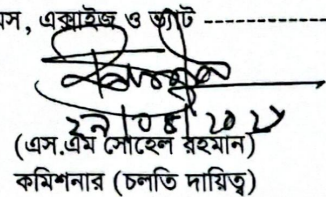 স, এক্সাইজ ও ভ্যাট ------------------
(এস.এম সোহেল রহমান)
কমিশনার (চলতি দায়িত্ব)